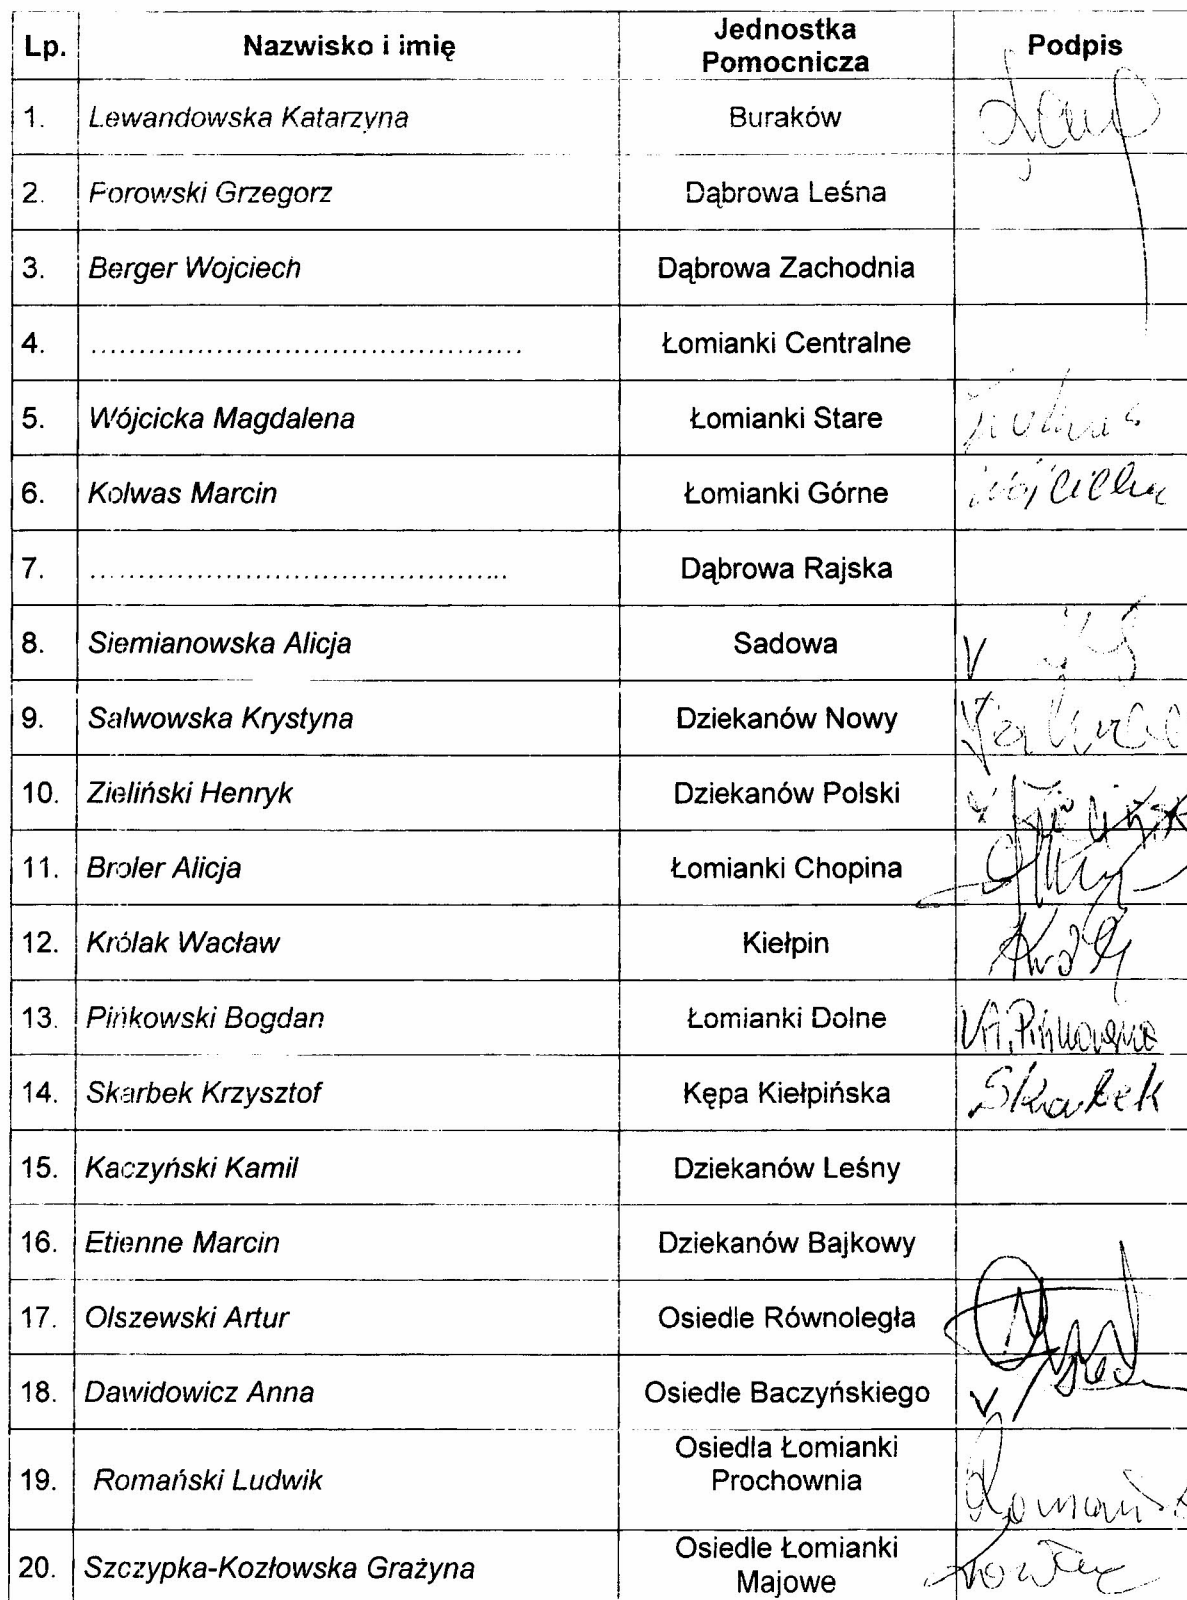 Lp. Nazwisko i imię Jednostka Pomocnicza Podpis
1. Lewandowska Katarzyna Buraków
2. Porowski Grzegorz Dąbrowa Leśna
3. Berger Wojciech Dąbrowa Zachodnia
4. ............................................. Łomianki Centralne
5. Wójcicka Magdalena Łomianki Stare
6. Kolwas Marcin Łomianki Górne Wójcicka
7. ............................................ Dąbrowa Rajska
8. Siemianowska Alicja Sadowa V
9. Salwowska Krystyna Dziekanów Nowy
10. Zieliński Henryk Dziekanów Polski
11. Broler Alicja Łomianki Chopina
12. Królak Wacław Kiełpin
13. Pińkowski Bogdan Łomianki Dolne
14. Skarbek Krzysztof Kępa Kiełpińska Skarbek
15. Kaczyński Kamil Dziekanów Leśny
16. Etienne Marcin Dziekanów Bajkowy
17. Olszewski Artur Osiedle Równoległa
18. Dawidowicz Anna Osiedle Baczyńskiego V
19. Romański Ludwik Osiedla Łomianki Prochownia
20. Szczypka-Kozłowska Grażyna Osiedle Łomianki Majowe